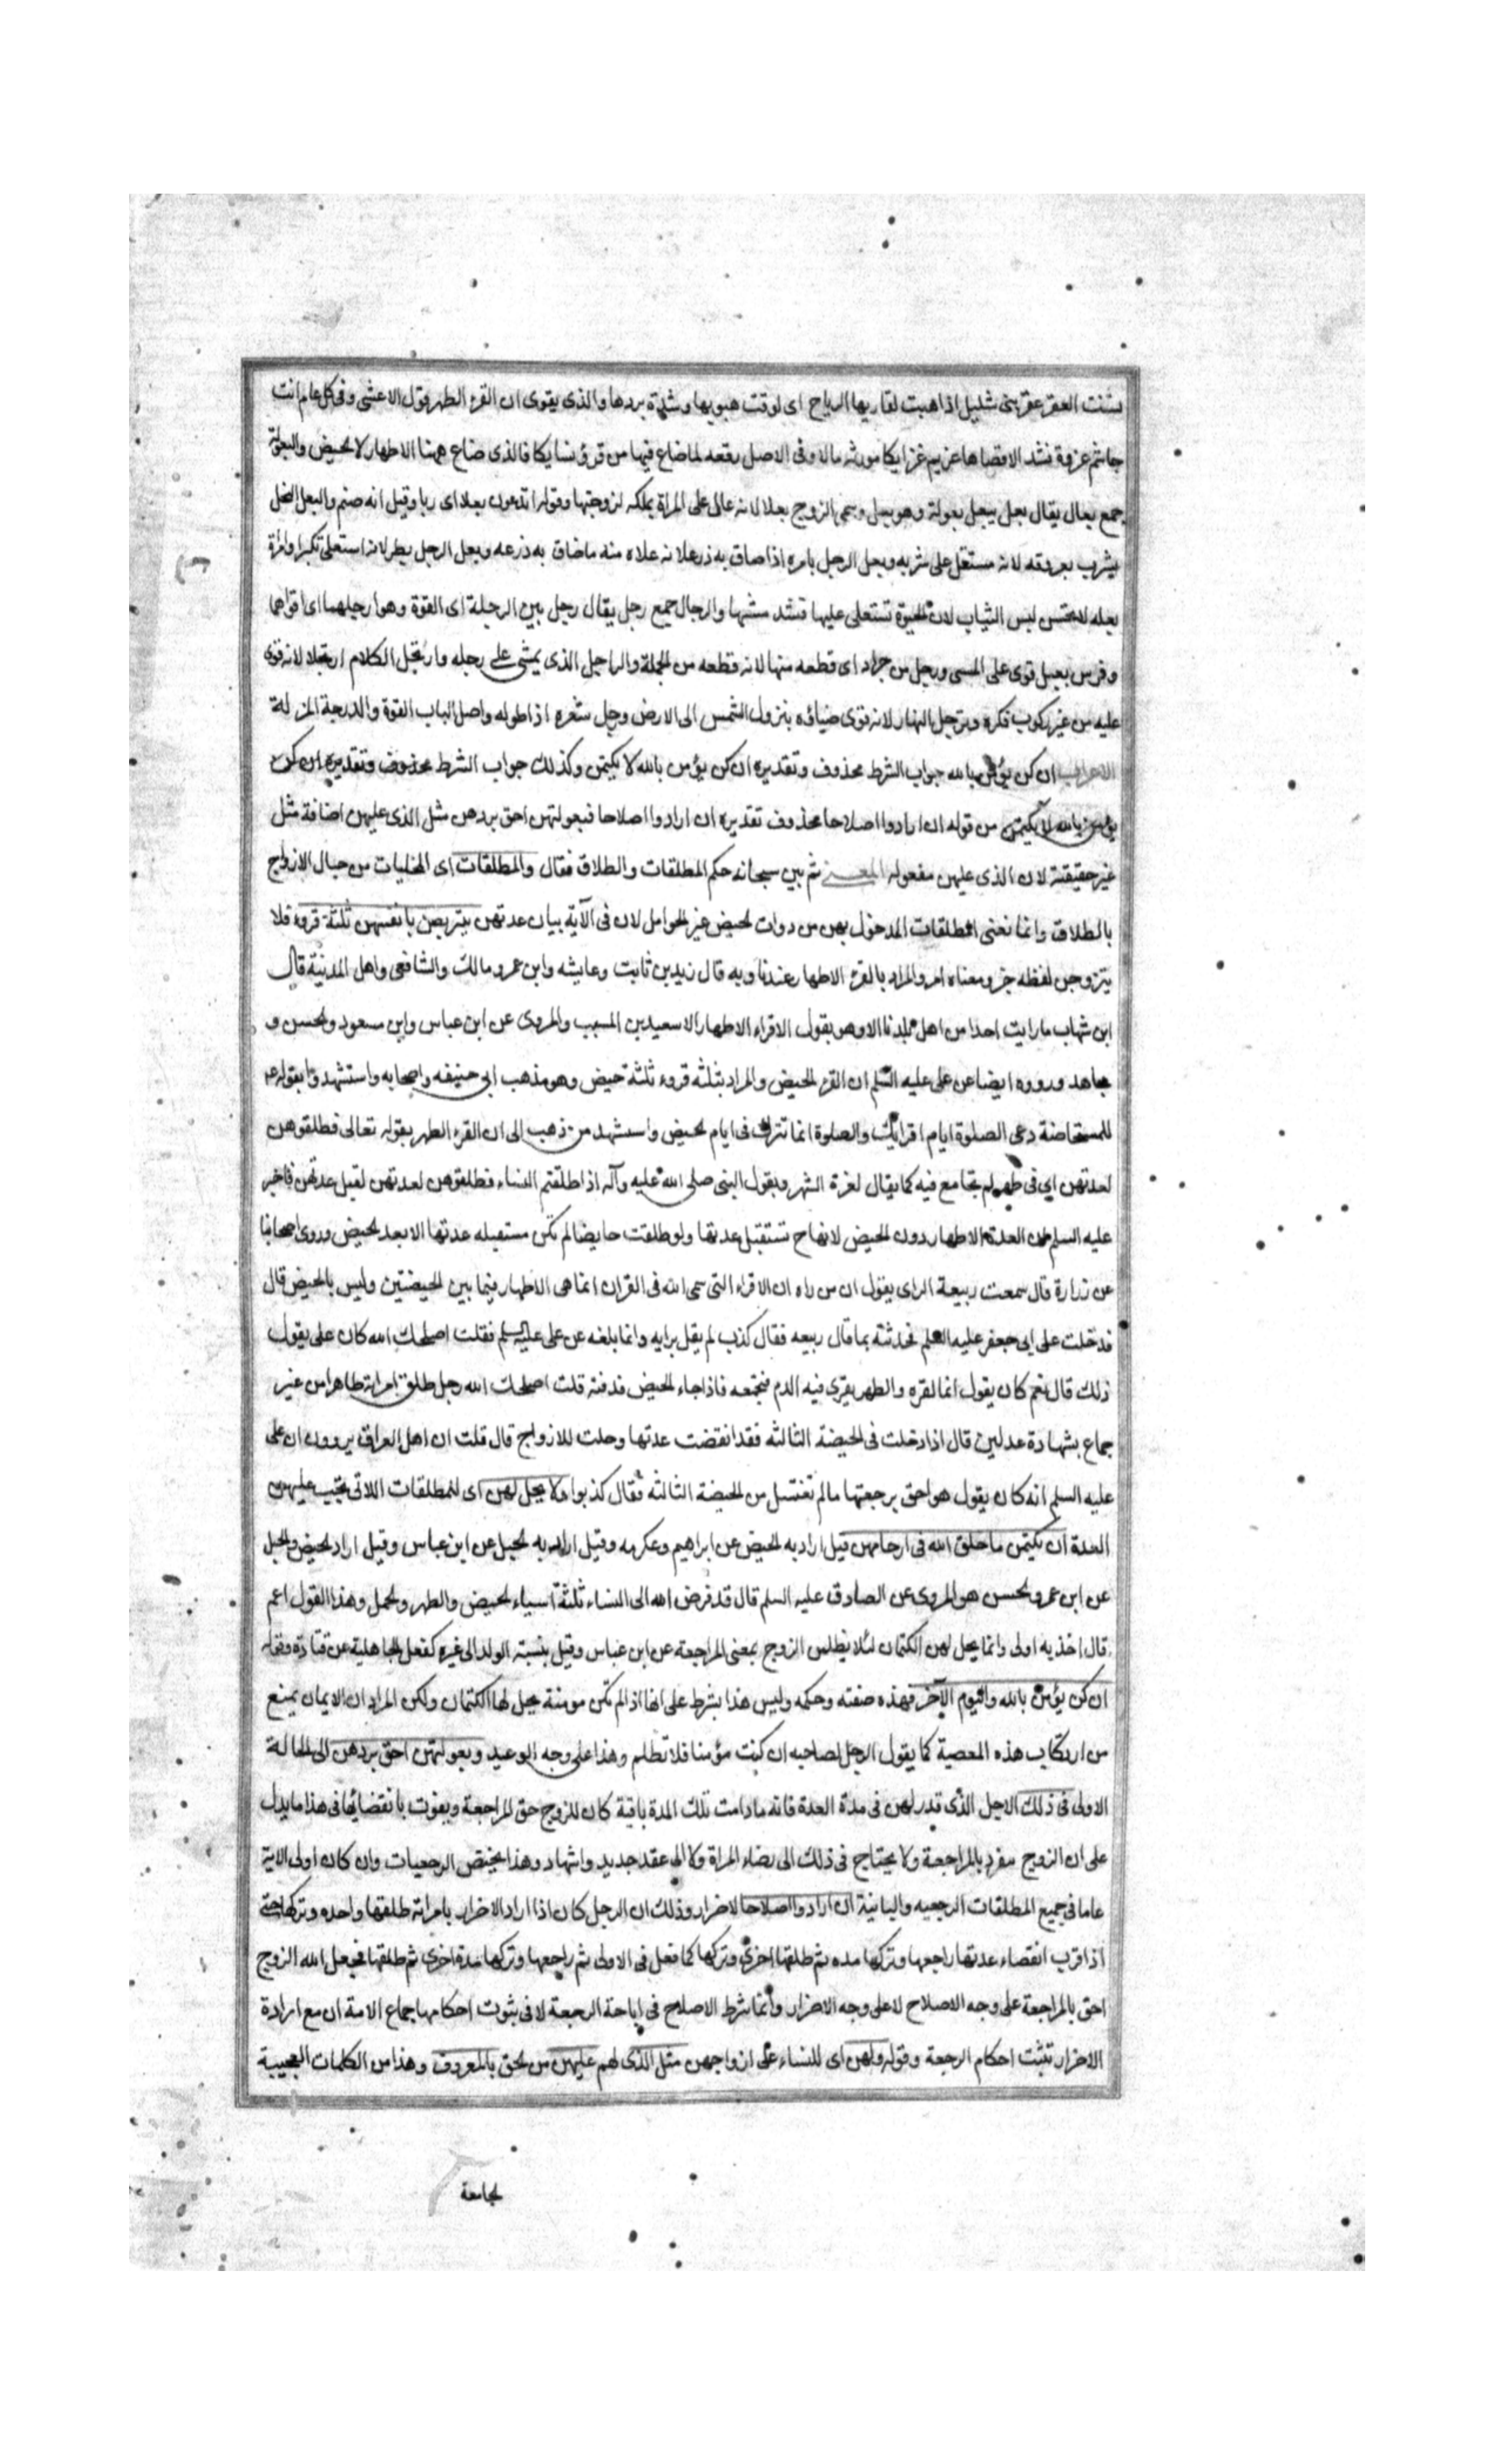 شنت العقر عقر بنی شلیل اذا هبت لقاریها الریاح ای لوقت هبوبها وشدة بردها والذی یقوی ان القرء الطهر قول الاعشی وفی کل عام انت
جاشم غزوة تشد الاقصاها عزیم عزایکا مورثه مالا وفی الاصل رفعه لماضاع فیها من قرؤ نسایکا فالذی ضاع ههنا الاطهار لا الحیض والبعولة
جمع بعال یقال بعل یبعل بعولة وهو بعل وسمی الزوج بعلا لانه عال علی المراة بملکه لزوجتها وقوله اتدعون بعلا ای ربا وقیل انه صنم والبعل النخل
یشرب بعروقه لانه مستعل علی شربه وبعل الرجل بامره اذا ضاق به ذرعا لانه علاه منه ماضاق به ذرعه وبعل الرجل بطر لانه استعلی تکبرا وامراة
بعله لا تحسن لبس الثیاب لان الحیرة تستعلی علیها والرجال جمع رجل یقال رجل بین الرجلة ای القوة وهو ارجلهما ای اقواهما
وفرس رجیل قوی علی المشی ورجل من جراد ای قطعه منها لانه قطعه من الجملة والراجل الذی یمشی علی رجله وارتجل الکلام ارتجالا لانه قوی
علیه من غیر رکوب فکره وترجل النهار لانه قوی ضیاؤه بنزول الشمس الی الارض ورجل شعره اذا طوله واصل الباب القوة والدرجة المنزلة
الاعراب ان کن یؤمن بالله جواب الشرط محذوف وتقدیره ان کن یؤمن بالله لا یکتمن وکذلک جواب الشرط محذوف وتقدیره ان کن
یؤمن بالله لا یکتمن من قوله ان ارادوا اصلاحا محذوف تقدیره ان ارادوا اصلاحا فبعولتهن احق بردهن مثل الذی علیهن اضافة مثل
غیر حقیقیة لان الذی علیهن مفعوله المعنی ثم بین سبحانه حکم المطلقات والطلاق فقال والمطلقات ای المخلیات من حبال الازواج
بالطلاق وانما نعنی المطلقات المدخول بهن من ذوات الحیض غیر الحوامل لان فی الآیة بیان عدتهن یتربصن بانفسهن ثلثة قروء فلا
یتزوجن لفظه خبر ومعناه امر والمراد بالقرء الاطهار عندنا وبه قال زید بن ثابت وعایشه وابن عمر ومالک والشافعی واهل المدینة قال
ابن شهاب ما رایت احدا من اهل بلدنا الا وهو یقول الاقراء الاطهار الا سعید بن المسیب والمروی عن ابن عباس وابن مسعود والحسن و
مجاهد ورووه ایضا عن علی علیه السلم ان القرء الحیض والمراد بثلثه قروء ثلثة حیض وهو مذهب ابی حنیفه واصحابه واستشهدوا بقوله ع
للمستحاضة دعی الصلوة ایام اقرائک والصلوة انما تترک فی ایام الحیض واستشهد من ذهب الی ان القرء الطهر بقوله تعالی فطلقوهن
لعدتهن ای فی طهر لم تجامع فیه کما یقال لغرة الشهر وبقول النبی صلی الله علیه وآله اذا طلقتم النساء فطلقوهن لعدتهن لقبل عدتهن فاخبر
علیه السلم ان العدة الاطهار دون الحیض لانها ح تستقبل عدتها ولو طلقت حایضا لم تکن مستقبله عدتها الا بعد الحیض وروی اصحابنا
عن زرارة قال سمعت ربیعة الرای یقول ان من رایه ان الاقراء التی سمی الله فی القران انما هی الاطهار فیما بین الحیضتین ولیس بالحیض قال
فدخلت علی ابی جعفر علیه السلم فحدثته بما قال ربیعه فقال کذب لم یقل برایه وانما بلغه عن علی علیه السلم فقلت اصلحک الله کان علی یقول
ذلک قال نعم کان یقول انما القرء والطهر یقری فیه الدم فتجمعه فاذا جاء الحیض قذفته قلت اصلحک الله رجل طلق امراته طاهرا من غیر
جماع بشهادة عدلین قال اذا دخلت فی الحیضة الثالثه فقد انقضت عدتها وحلت للازواج قال قلت ان اهل العراق یروون ان علی
علیه السلم انه کان یقول هو احق برجعتها ما لم تغتسل من الحیضة الثالثه فقال کذبوا ولا یحل لهن ای للمطلقات اللاتی تجب علیهن
العدة ان یکتمن ما خلق الله فی ارحامهن قیل اراد به الحیض عن ابراهیم وعکرمه وقیل اراد به الحبل عن ابن عباس وقیل اراد الحیض والحبل
عن ابن عمر والحسن هو المروی عن الصادق علیه السلم قال قد فرض الله الی النساء ثلثة اشیاء الحیض والطهر والحمل وهذا القول اعم
قال اخذ به اولی وانما یحل لهن الکتمان لئلا یظلمن الزوج بمعنی المراجعة عن ابن عباس وقیل بنسبة الولد الی غیره کفعل الجاهلیة عن قتادة وقوله
ان کن یؤمن بالله والیوم الآخر فهذه صفته وحکمه ولیس هذا بشرط علی انها اذا لم تکن مومنة یحل لها الکتمان ولکن المراد ان الایمان یمنع
من ارتکاب هذه المعصیة کما یقول الرجل لصاحبه ان کنت مؤمنا فلا تظلم وهذا علی وجه الوعید وبعولتهن احق بردهن الی الحالة
الاولی فی ذلک الاجل الذی قدر لهن فی مدة العدة فانه ما دامت تلک المدة باقیة کان للزوج حق المراجعة ویفوت بانقضائها فی هذا ما یدل
علی ان الزوج منفرد بالمراجعة ولا یحتاج فی ذلک الی رضاء المراة ولا الی عقد جدید واشهاد وهذا یختص الرجعیات وان کان اولی الایة
عاما فی جمیع المطلقات الرجعیه والبائنیة ان ارادوا اصلاحا لا ضرار وذلک ان الرجل کان اذا اراد الاضرار بامراته طلقها واحده وترکها حتی
اذا قرب انقضاء عدتها راجعها وترکها مده ثم طلقها اخری وترکها کما فعل فی الاولی ثم راجعها وترکها مدة اخری ثم طلقها فجعل الله الزوج
احق بالمراجعة علی وجه الاصلاح لا علی وجه الاضرار وانما شرط الاصلاح فی اباحة الرجعة لا فی ثبوت احکامها جماع الامة ان مع ارادة
الاضرار تثبت احکام الرجعة وقوله ولهن ای للنساء علی ازواجهن مثل الذی لهم علیهن من الحق بالمعروف وهذا من الکلمات العجیبة
الجامعة